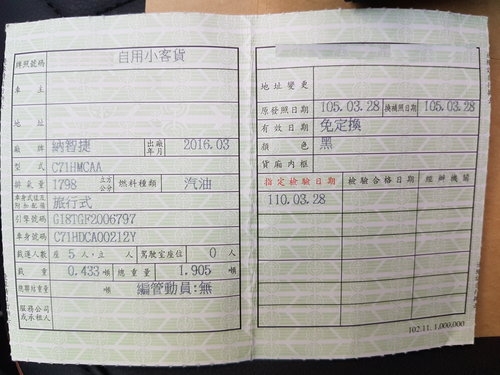 牌照號碼 自用小客貨
車主
地址
廠牌 納智捷 出廠年月 2016.03
型式 C71HMCAA
排氣量 1798 立方公分 燃料種類 汽油
車身式樣及附加配備 旅行式
引擎號碼 G18TGF2006797
車身號碼 C71HDCA00212Y
載運人數 座 5 人‧立 人 駕駛室座位 0 人
載重 0.433 噸 總重量 1.905 噸
噸 編管動員:無
服務公司或承租人
地址變更
原發照日期 105.03.28 換補照日期 105.03.28
有效日期 免定換
顏色 黑
貨廂內框
指定檢驗日期 檢驗合格日期 經辦機關
110.03.28
102.11.1,000,000